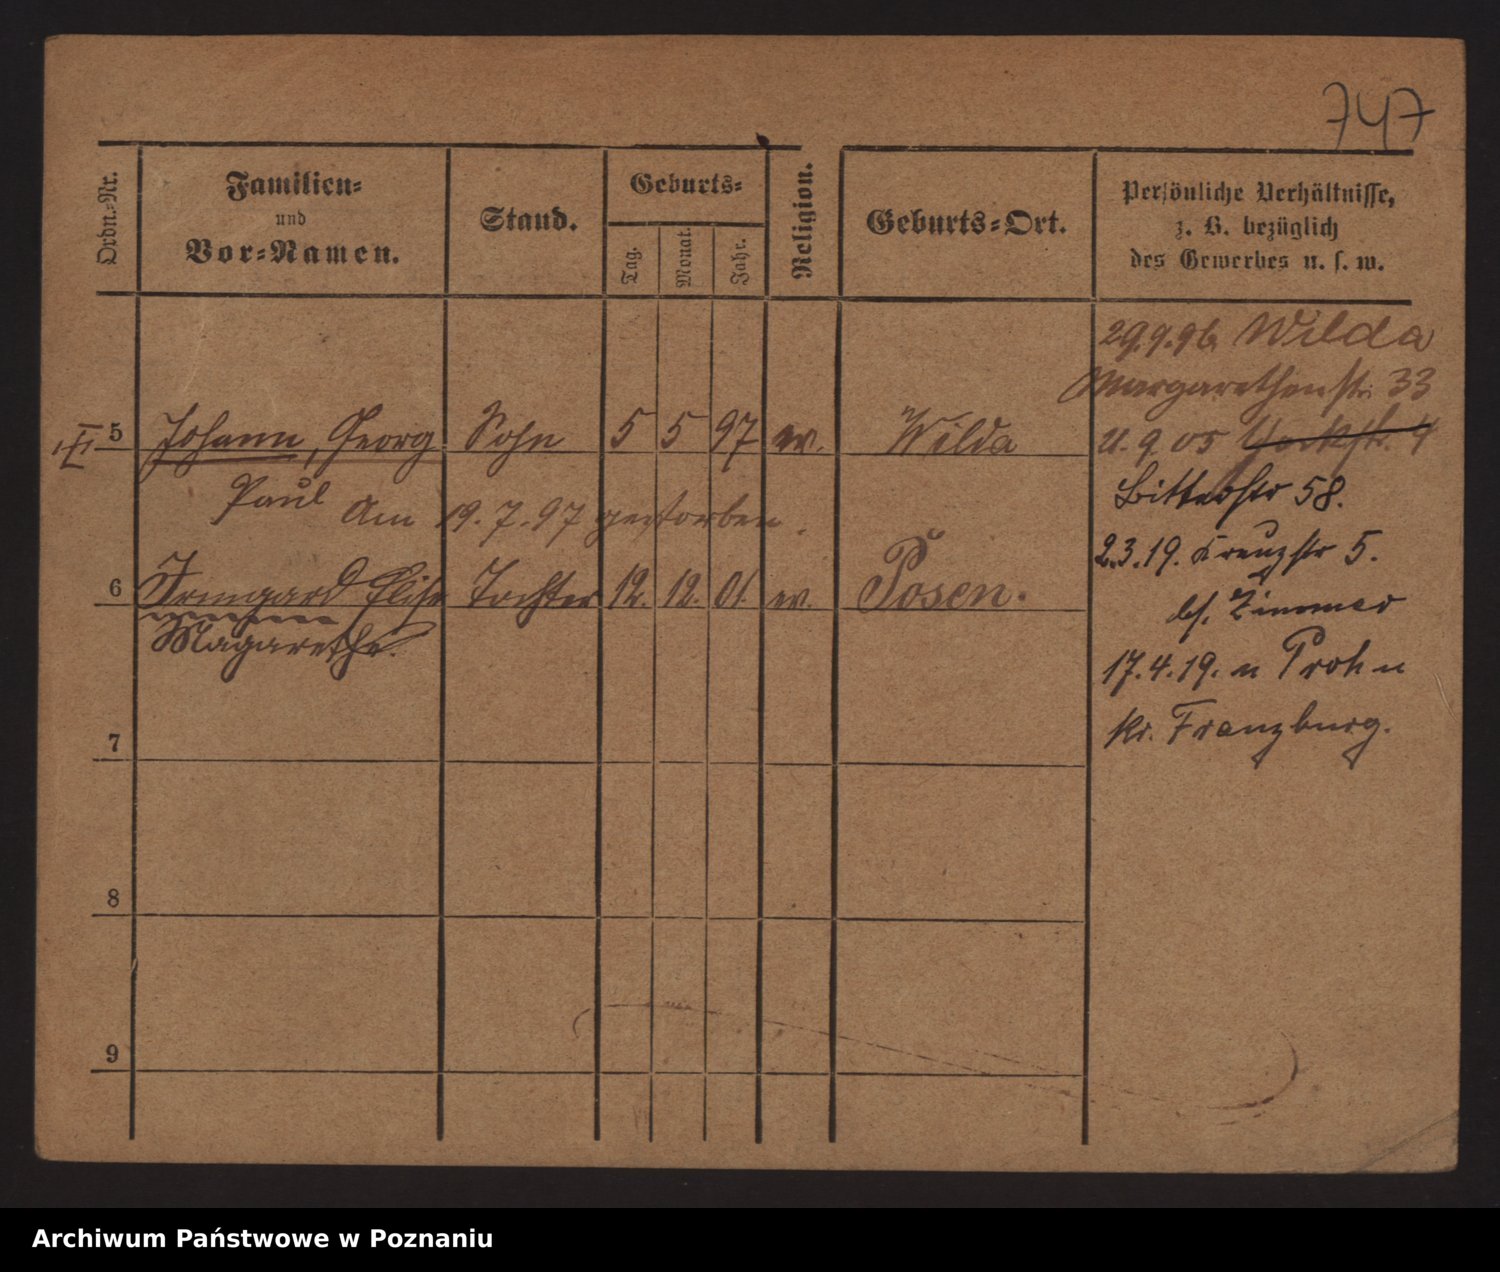 747
Ordn.-Nr.
Familien-
und
Vor-Namen.
Stand.
Geburts-
Tag.
Monat.
Jahr.
Religion.
Geburts-Ort.
Persönliche Verhältnisse,
z. B. bezüglich
des Gewerbes u. s. w.
29.9.96 Wilda
Margarethenstr. 33
5 Johann, Georg Sohn 5 5 97 ev. Wilda
Paul Am 19.7.97 gestorben.
9 05 Yorkstr. 4
Bitterstr 58.
2.3.19. Kreuzstr 5.
6 Irmgard Elise Tochter 12. 12. 01 ev. Posen.
Magarethe.
bes. Zimmer
17.4.19. n Prohn
Kr. Franzburg.
7
8
9
Archiwum Państwowe w Poznaniu